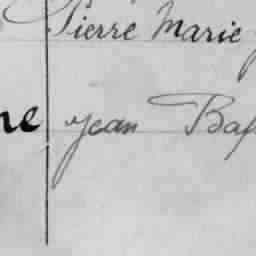 Pierre Marie
ne Jean Bap